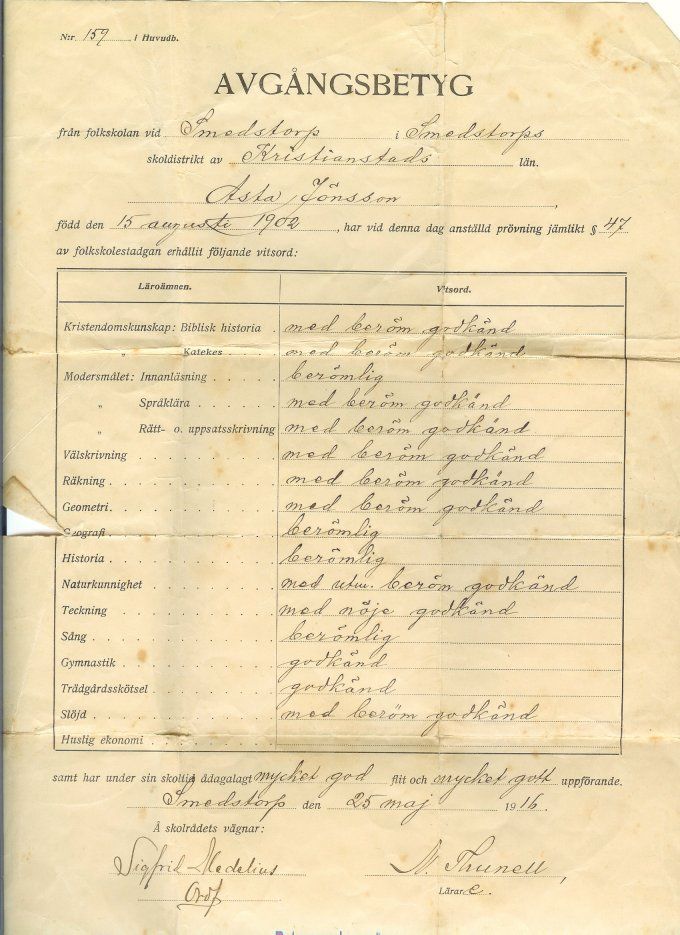 N:r 159 i Huvudb.
AVGÅNGSBETYG
från folkskolan vid Smedstorp i Smedstorps
skoldistrikt av Kristianstads län.
Asta Jönsson,
född den 15 augusti 1902, har vid denna dag anställd prövning jämlikt § 47
av folkskolestadgan erhållit följande vitsord:
Läroämnen. Vitsord.
Kristendomskunskap: Biblisk historia . med beröm godkänd
„ Katekes . . . . med beröm godkänd
Modersmålet: Innanläsning . . . . . berömlig
„ Språklära . . . . . . med beröm godkänd
„ Rätt- o. uppsatsskrivning med beröm godkänd
Välskrivning . . . . . . . . . . . med beröm godkänd
Räkning . . . . . . . . . . . . . med beröm godkänd
Geometri . . . . . . . . . . . . . med beröm godkänd
Geografi . . . . . . . . . . . . . berömlig
Historia . . . . . . . . . . . . . berömlig
Naturkunnighet . . . . . . . . . . med utm. beröm godkänd
Teckning . . . . . . . . . . . . . med nöje godkänd
Sång . . . . . . . . . . . . . . . berömlig
Gymnastik . . . . . . . . . . . . godkänd
Trädgårdsskötsel . . . . . . . . . godkänd
Slöjd . . . . . . . . . . . . . . med beröm godkänd
Huslig ekonomi . . . . . . . . . .
samt har under sin skoltid ådagalagt mycket god flit och mycket gott uppförande.
Smedstorp den 25 maj 1916.
Å skolrådets vägnar:
Sigfrid Medelius N. Thunell,
Ordf Lärare.